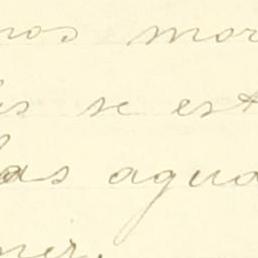 nos mor
s se est
las agua
ner.